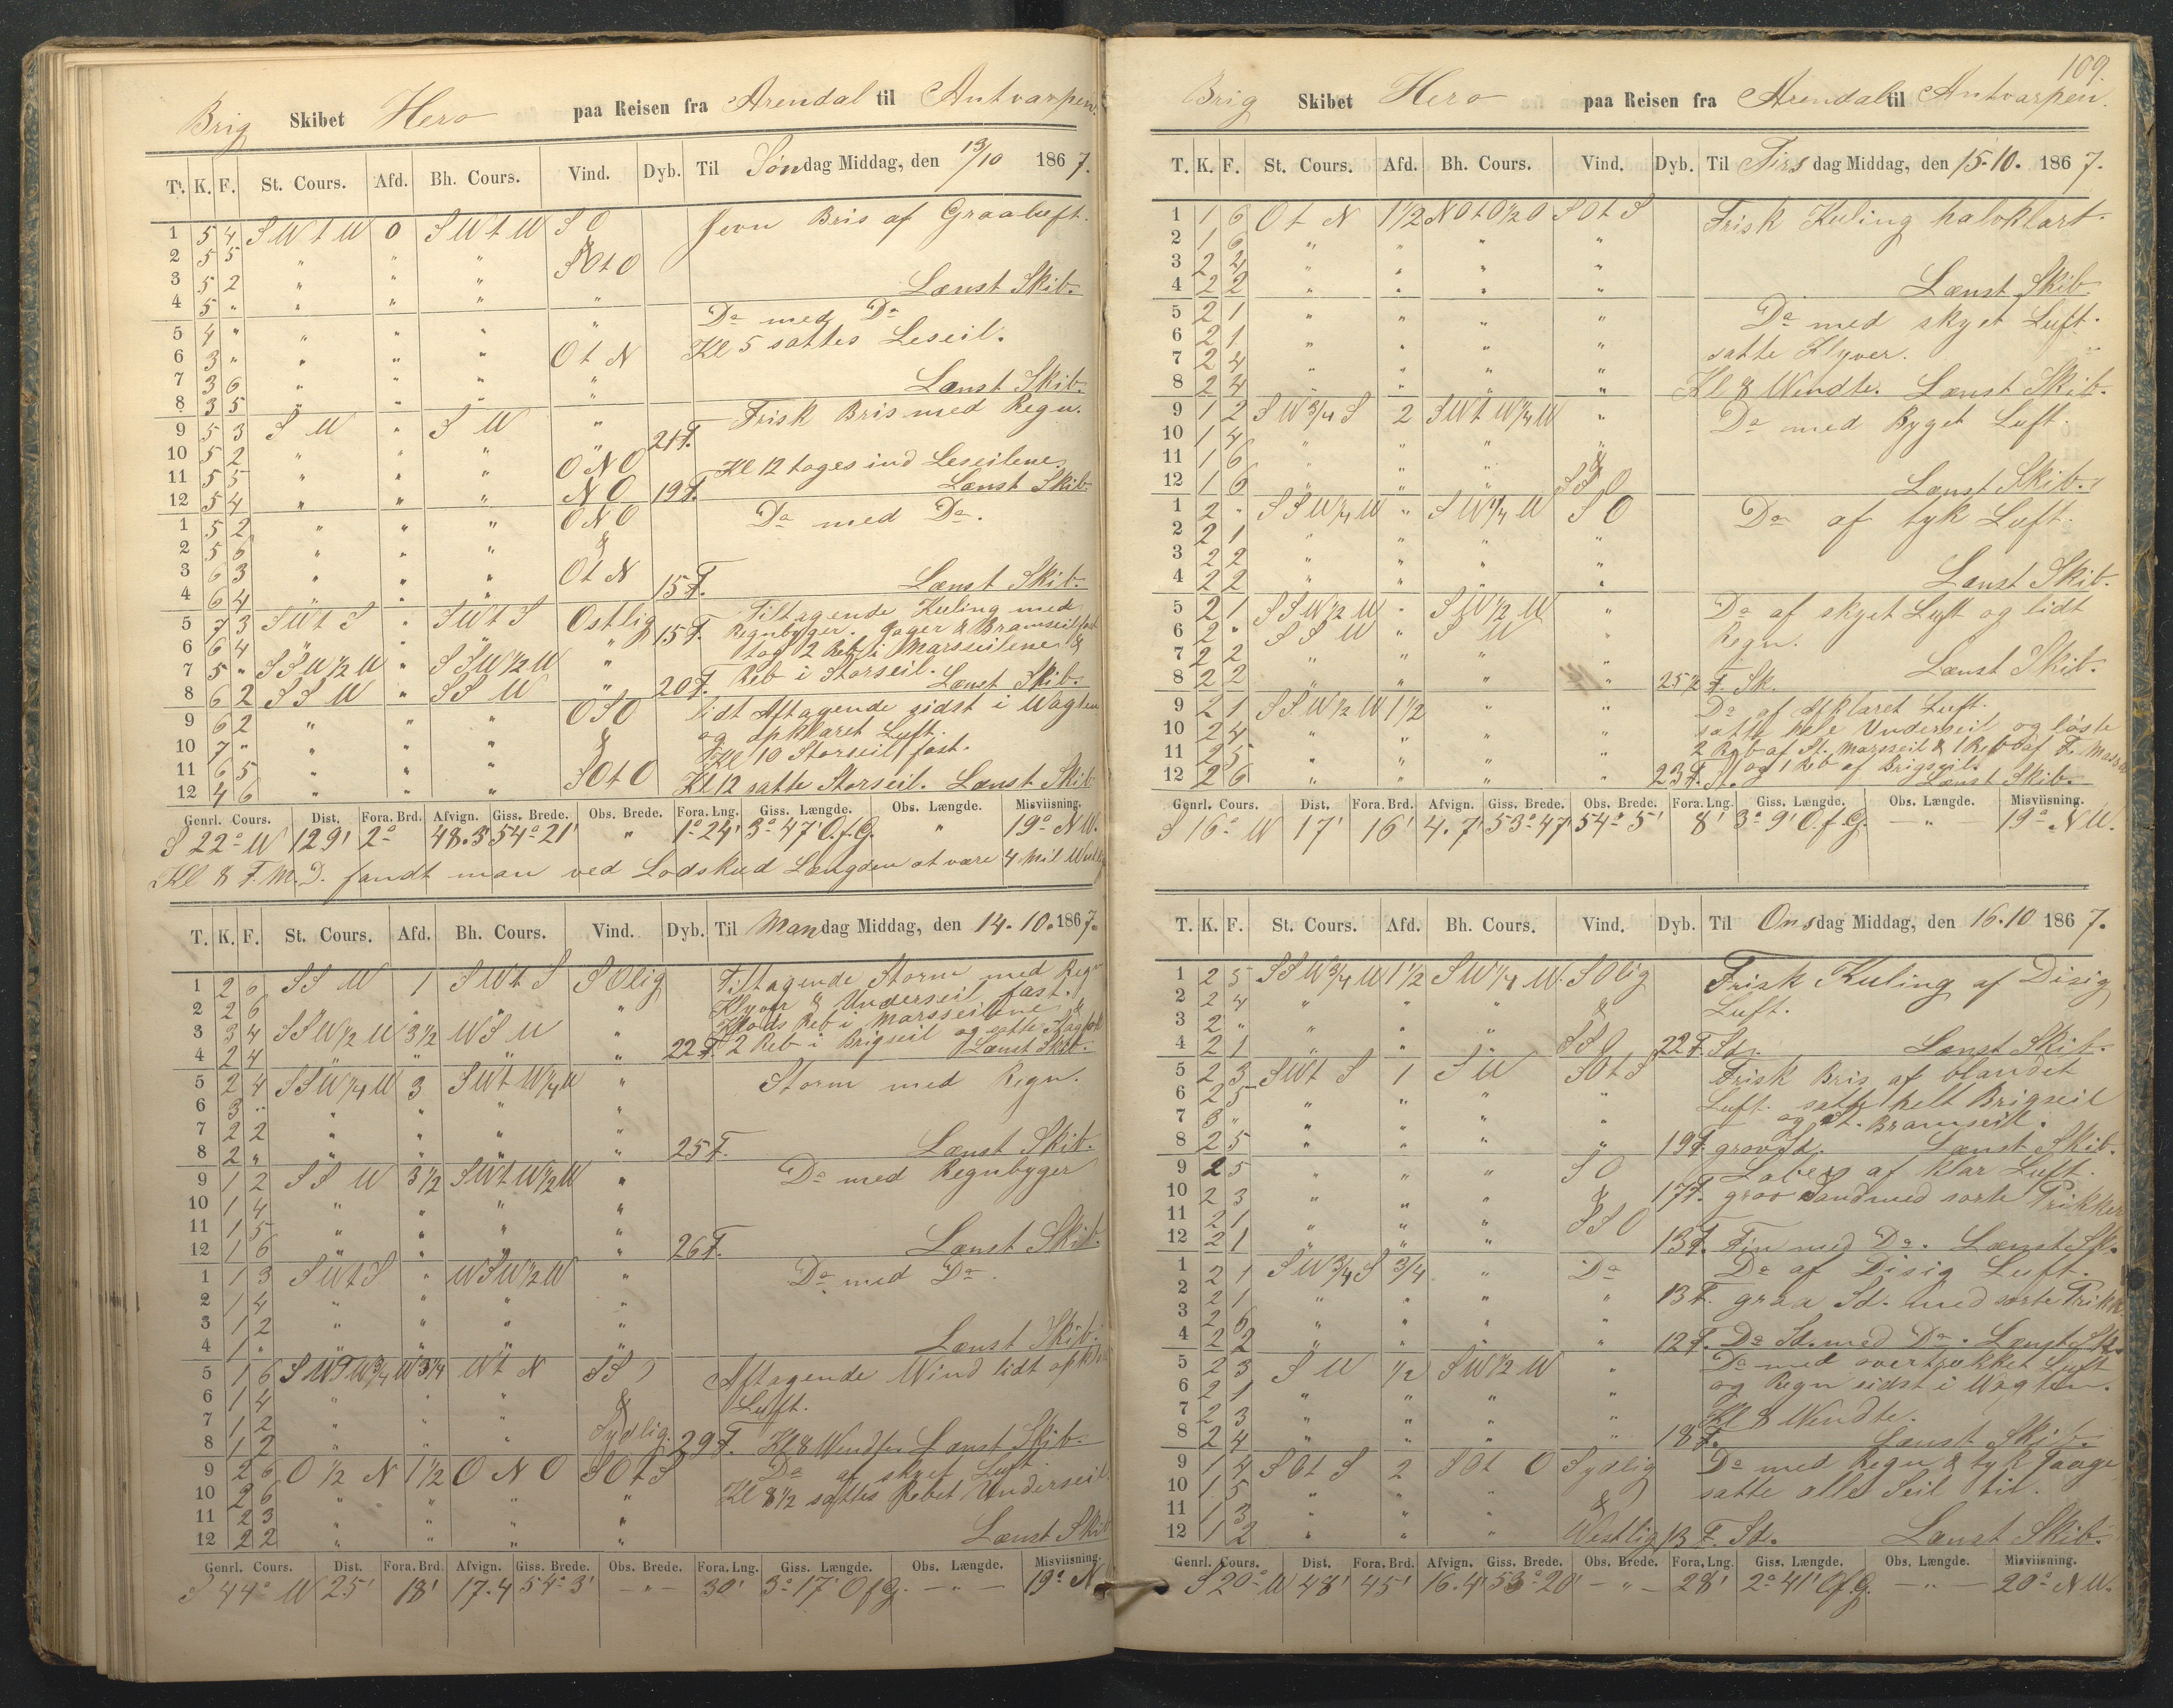 Brig Skibet Hero paa Reisen fra Arendal til Antvarpen.
T. K. F. St. Cours. Afd. Bh. Cours. Vind. Dyb. Til Søndag Middag, den 13/10 1867.
1 5 4 S W t W 0 S W t W S O Jevn Bris af Graaluft.
2 5 5 " " " &
3 5 2 " " " S O t O Lænst Skib.
4 5 " " " " "
5 4 " " " " " Do med Do
6 3 " " " " O t N Kl 5 sattes Leseil.
7 3 6 " " " " Lænst Skib.
8 3 5 " " " "
9 5 3 S W " S W " 21 F. Frisk Bris med Regn.
10 5 2 " " " O N O Kl 12 toges ind Leseilene.
11 5 5 " " " & Lænst Skib.
12 5 4 " " " N O 19 F.
1 5 2 " " " O N O Do med Do.
2 5 6 " " " &
3 6 3 " " " O t N Lænst Skib.
4 6 4 " " " 15 F.
5 7 3 S W t S " S W t S Ostlig 15 F. Tiltagende Kuling med
6 6 4 " " " " Regnbyger. Jager & Bramseil fast
7 5 " S S W 1/2 W " S S W 1/2 W " tog 2 Reb i Marsseilene &
8 6 2 S S W " S S W " 20 F. Reb i Storseil. Lænst Skib.
9 6 2 " " " O S O Lidt Aftagende sidst i Wagten
10 7 " " " " & og opklaret Luft.
11 6 5 " " " Kl 10 Storseil fast.
12 4 6 " " " S O t O Kl 12 satte Storseil. Lænst Skib
Genrl. Cours. Dist. Fora. Brd. Afvign. Giss. Brede. Obs. Brede. Fora. Lng. Giss. Længde. Obs. Længde. Misviisning.
S 22° W 129' 2° 48.3 54° 21' " 1° 24' 3° 47' O. f. G. " 19° N W.
Kl 8 F. M. D. fandt man ved Lodskud Længden at være 4 Mil
T. K. F. St. Cours. Afd. Bh. Cours. Vind. Dyb. Til Mandag Middag, den 14.10.1867.
1 2 6 S S W 1 S W t S S Olig Tiltagende Storm med Regn
2 2 6 " " " " Klyver & Underseil fast.
3 3 4 S S W 1/2 W 3 1/2 W S W " Reb i Marsseilene &
4 2 4 " " " " 22 F. 2 Reb i Brigseil og satte Lænst Skib.
5 2 4 S S W 1/4 W 3 S W t W 1/4 W " Storm med Regn.
6 3 " " " " "
7 2 2 " " " "
8 2 " " " " " 25 F. Lænst Skib.
9 1 2 S S W 3 1/2 S W t W 1/2 W " Do med Regnbyger
10 1 4 " " " "
11 1 5 " " " "
12 1 6 " " " " 26 F. Lænst Skib.
1 1 3 S W t S " W S W 1/2 W " Do med Do.
2 1 4 " " " "
3 1 2 " " " "
4 1 " " " " " Lænst Skib.
5 1 6 S W t W 3/4 W 3 1/4 W t N S S O Aftagende Wind lidt
6 1 4 " " " & Luft.
7 1 2 " " " Sydlig.
8 1 2 " " " 29 F. Kl 8 Wendte. Lænst Skib.
9 2 6 O 1/2 N 1 1/2 O N O S O t S Do af skyet Luft
10 2 6 " " " " Kl 8 1/2 sattes Rebet Underseil.
11 2 3 " " " "
12 2 2 " " " " Lænst Skib
Genrl. Cours. Dist. Fora. Brd. Afvign. Giss. Brede. Obs. Brede. Fora. Lng. Giss. Længde. Obs. Længde. Misviisning.
S 44° W 25' 18' 17.4 54° 3' — " — 30' 3° 17' O f G. — " — 19° N
109.
Brig Skibet Hero paa Reisen fra Arendal til Antvarpen.
T. K. F. St. Cours. Afd. Bh. Cours. Vind. Dyb. Til Tirsdag Middag, den 15.10. 1867.
1 1 6 O t N 1 1/2 N O t O 1/2 O S O t S Frisk Kuling halvklart.
2 1 6 " " " "
3 2 4 " " " "
4 2 2 " " " " Lænst Skib.
5 2 1 " " " " Do med skyet Luft.
6 2 1 " " " " satte Klyver.
7 2 4 " " " "
8 2 4 " " " " Kl 8 Wendte. Lænst Skib.
9 1 2 S W 3/4 S 2 S W t W 1/4 W " Do med Byget Luft.
10 1 4 " " " "
11 1 6 " " " &
12 1 6 " " " S S O Lænst Skib.
1 2 " S S W 1/4 W " S W 1/4 W S O Do af tyk Luft.
2 2 1 " " " "
3 2 2 " " " "
4 2 2 " " " " Lænst Skib.
5 2 1 S S W 1/2 W " S W 1/2 W " Do af skyet Luft og lidt
6 2 " S S W " S W " Regn.
7 2 2 " " " "
8 2 2 " " " " 25 1/2 F. Sk. Lænst Skib.
9 2 1 S S W 1/2 W 1 1/2 " " Do af opklaret Luft.
10 2 4 " " " " satte hele Underseil og løste
11 2 5 " " " " 2 Reb af St. Marsseil & 1 Reb af F. Mars
12 2 6 " " " " 23 F. St. og 1 Reb af Brigseil. Lænst Skib.
Genrl. Cours. Dist. Fora. Brd. Afvign. Giss. Brede. Obs. Brede. Fora. Lng. Giss. Længde. Obs. Længde. Misviisning.
S 16° W 17' 16' 4.7' 53° 47' 54° 5' 8' 3° 9' O. f. G. — " — 19° N W.
T. K. F. St. Cours. Afd. Bh. Cours. Vind. Dyb. Til Onsdag Middag, den 16.10 1867.
1 2 5 S S W 3/4 W 1 1/2 S W 1/4 W. S Olig Frisk Kuling af Disig
2 2 4 " " " & Luft.
3 2 " " " "
4 2 1 " " " S S O 22 F. Sd. Lænst Skib.
5 2 3 S W t S 1 S W S O t S Frisk Bris af blandet
6 2 5 " " " " Luft. satte helt Brigseil
7 3 " " " " " og St. Bramseil.
8 2 5 " " " " 19 F. grov Sd. Lænst Skib.
9 2 5 " " " S O Laber af klar Luft.
10 2 3 " " " & 17 F. grov Sand med sorte Prikker
11 2 1 " " " S S O
12 2 1 " " " 13 F. Fin med Do. Lænst Sk.
1 2 1 S W 3/4 S 3/4 " Do Do af Disig Luft.
2 2 1 " " " " 13 F. graa Sd. med sorte Prikk
3 2 6 " " " "
4 2 2 " " " " 12 F. Do Sd. med Do. Lænst Sk.
5 2 3 S W 1/2 S W 1/2 W " Do med overtrukket Luft
6 2 1 " " " " og Regn sidst i Wagten.
7 2 3 " " " " Kl 8 Wendte.
8 2 4 " " " " 18 F. Lænst Skib.
9 1 4 S O t S 2 S O t O Sydlig Do med Regn & tyk Taage
10 1 5 " " " & satte alle Seil til.
11 1 3 " " "
12 1 2 " " " Westlig 13 F. Sd. Lænst Skib.
Genrl. Cours. Dist. Fora. Brd. Afvign. Giss. Brede. Obs. Brede. Fora. Lng. Giss. Længde. Obs. Længde. Misviisning.
S 20° W 48' 45' 16.4' 53° 20' — " — 28' 2° 41' O. f. G. — " — 20° N W.